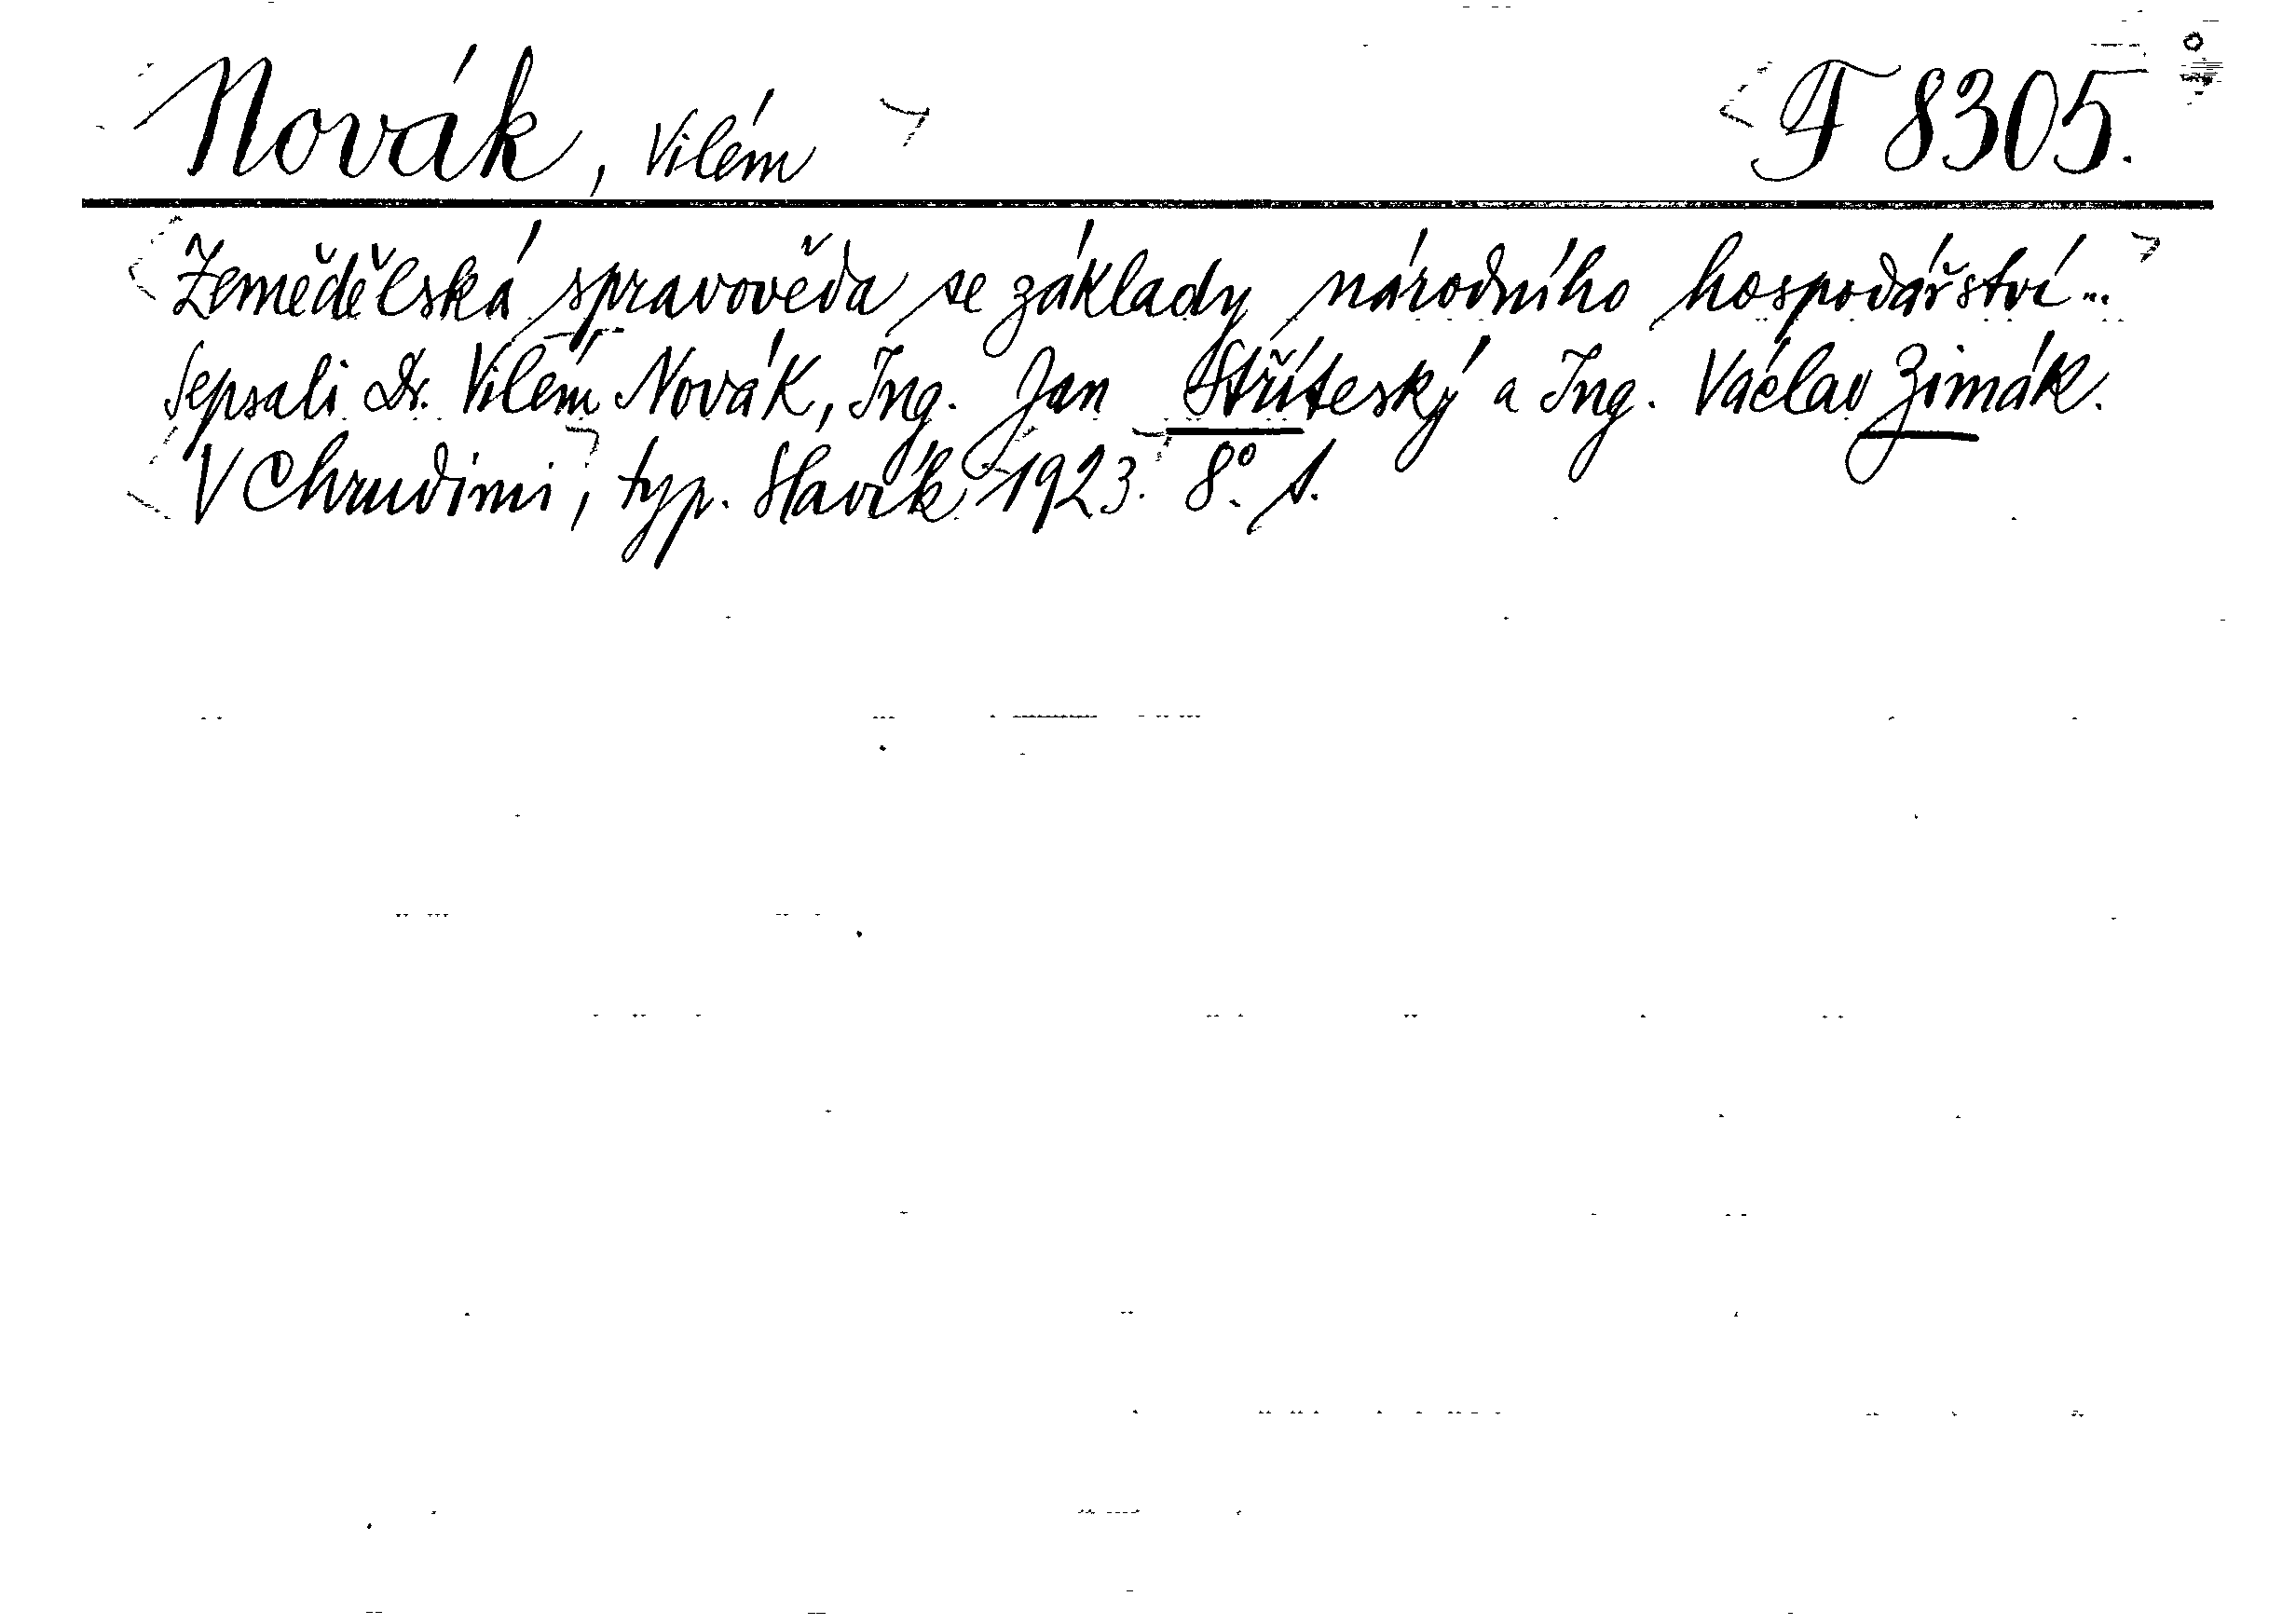 Novák, Vilém F 8305.
Zemědělská spravověda se základy národního hospodářství...
Sepsali Dr. Vilém Novák, Ing. Jan Stříteský a Ing. Václav Zimák.
V Chrudimi, typ. Slavík 1923. 8°. s.